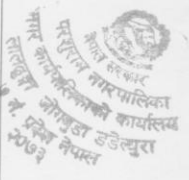 नेपाल सरकार
परशुराम नगरपालिका
नगर कार्यपालिकाको कार्यालय
जोगबुडा डडेल्धुरा
प्रदेश नेपाल
२०७३